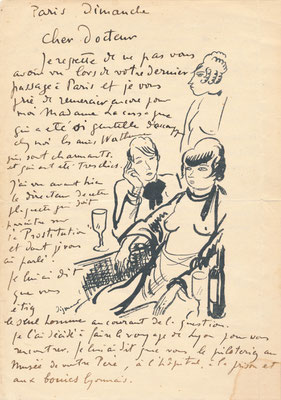 Paris Dimanche
Cher Docteur
Je regrette de ne pas vous
avoir vu lors de votre dernier
passage à Paris et je vous
prie de remercier encore pour
moi Madame Lacassagne
qui a été si gentille
chez moi les amis
qui sont charmants
et qui ont été très chics.
J'ai vu avant hier
le directeur
qui fait
paraître
Prostitution
et dont je vous
ai parlé.
Je lui ai dit
que vous
êtiez
le seul homme au courant de la question.
Je l'ai décidé à faire le voyage de Lyon pour vous
rencontrer. Je lui ai dit que vous le piloteriez au
Musée de votre Père, à l'hôpital, à la prison et
aux lyonnais.